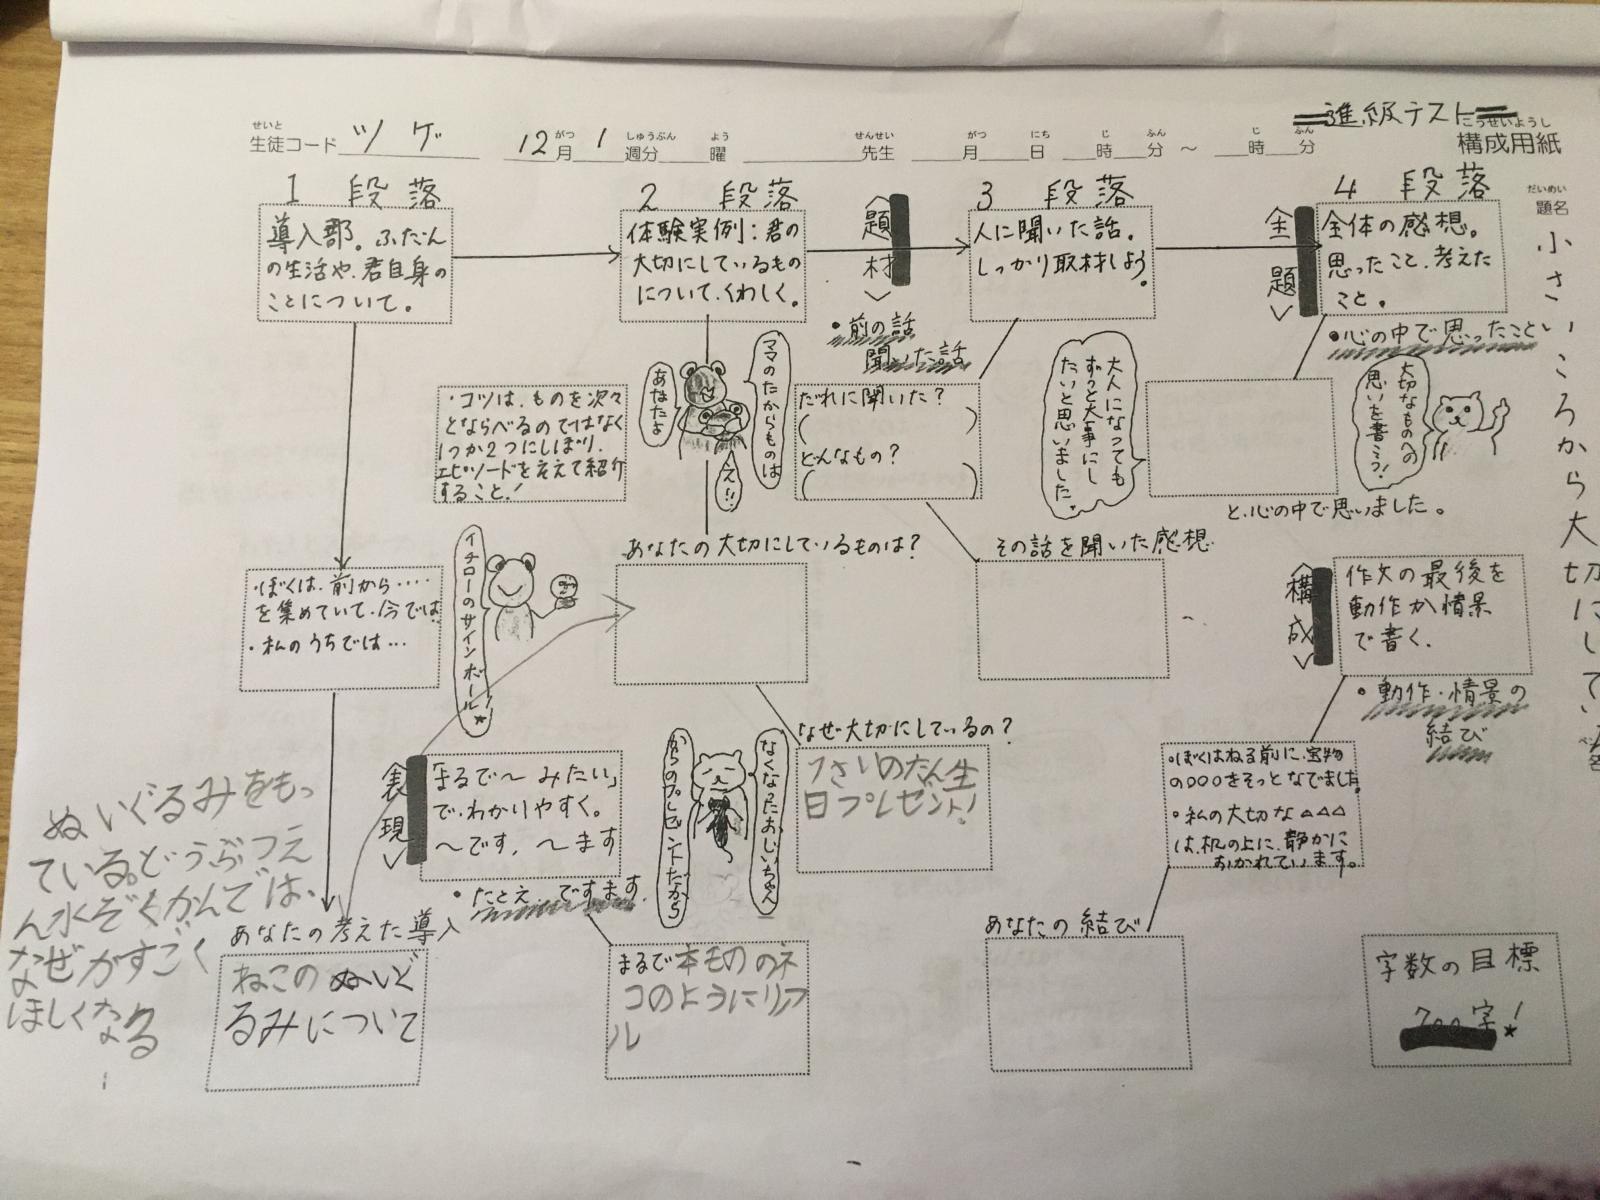 ＝進級テスト＝
せいと
生徒コード ツゲ
12月 1週分 曜
がつ しゅうぶん よう
せんせい
先生
がつ にち じ ふん じ ふん
月 日 時 分 ～ 時 分
こうせいようし
構成用紙
だいめい
題名
小さいころから大切にしている
1 段落
導入部。ふだん
の生活や、君自身の
ことについて。
2 段落
体験実例：君の
大切にしているもの
について、くわしく。
＜題材＞
3 段落
人に聞いた話。
しっかり取材しよう。
＜主題＞
4 段落
全体の感想。
思ったこと、考えた
こと。
・前の話
聞いた話
・心の中で思ったこと
・コツは、ものを次々
とならべるのではなく
1つか2つにしぼり、
エピソードをそえて紹介
すること！
ママのたからものは
あなたよ
え!!
だれに聞いた？
（ ）
どんなもの？
（ ）
大人になっても
ずっと大事にし
たいと思いました。
大切なものへの
思いを書こう！
と、心の中で思いました。
・ぼくは、前から‥‥
を集めていて、今では
・私のうちでは…
イチローのサインボール★
あなたの大切にしているものは？
その話を聞いた感想
＜構成＞
作文の最後を
動作か情景
で書く。
・動作・情景の
結び
＜表現＞
「まるで～みたい」
で、わかりやすく。
～です、～ます
・たとえ、ですます
なくなったおじいちゃん
からのプレゼントだから
なぜ大切にしているの？
1さいのたん生
日プレゼント！
・ぼくはねる前に、宝物
の○○○をそっとなでました。
・私の大切な△△△
は、机の上に、静かに
おかれています。
ぬいぐるみをもっ
ている。どうぶつえ
ん水ぞくかんでは、
なぜかすごく
ほしくなる
あなたの考えた導入
ねこのぬいぐ
るみについて
まるで本もののネ
コのようにリアル
あなたの結び
字数の目標
700字！★